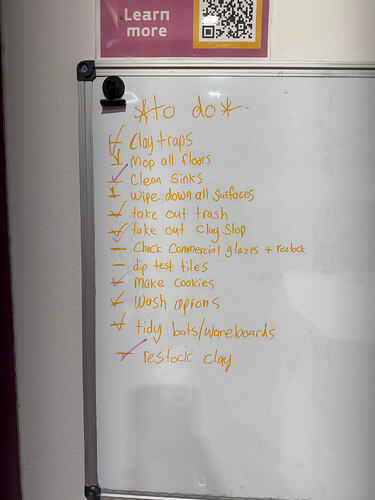 Learn
more
*to do*
Clay traps
Mop all floors
Clean Sinks
Wipe down all surfaces
take out trash
take out Clay Slop
Chick Commercial glazes + restock
dip test tiles
Make Cookies
Wash aprons
tidy bats/wareboards
restock clay